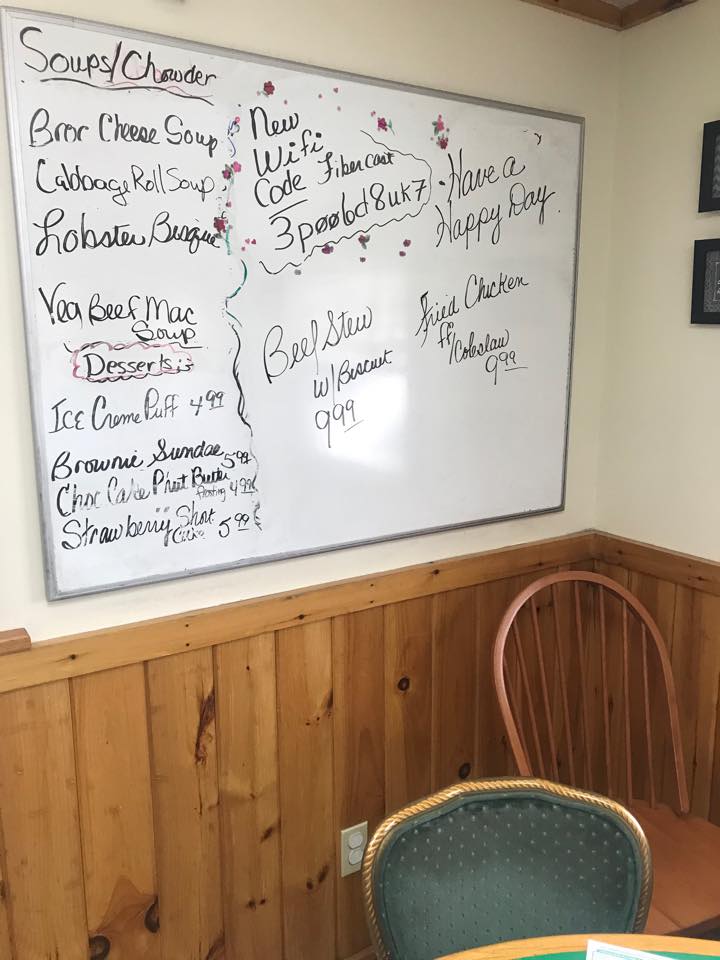 Soups/Chowder
Broc Cheese Soup
Cabbage Roll Soup
Lobster Bisque
Veg Beef Mac
Soup
Desserts
Ice Creme Puff 4.99
Brownie Sundae 5.99
Choc Cake Pnut Butter
Frosting 4.99
Strawberry Short
Cake 5.99
New
Wifi
Code Fibercast
3poobd8uk7
Have a
Happy Day
Beef Stew
w/Biscuit
9.99
Fried Chicken
ff
/Coleslaw
9.99